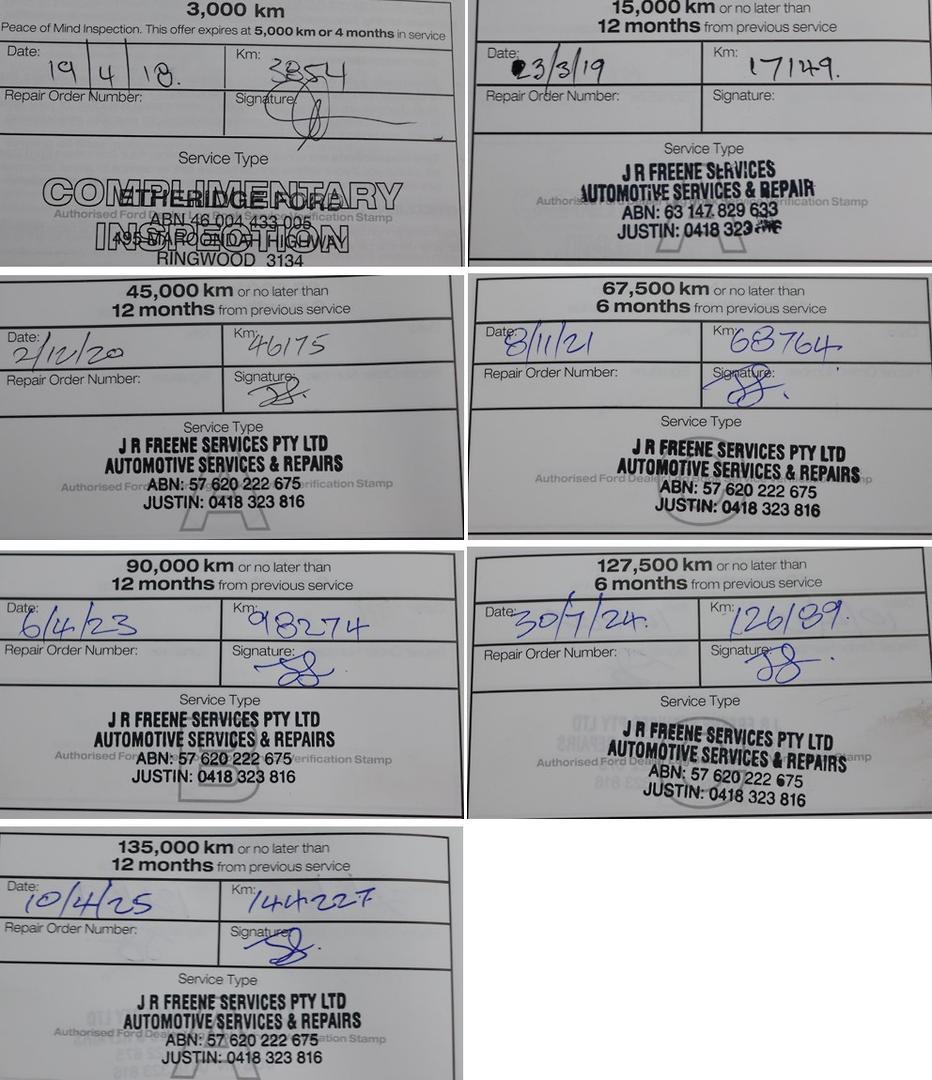 3,000 km
Peace of Mind Inspection. This offer expires at 5,000 km or 4 months in service
Date: 19/4/18. Km: 3854
Repair Order Number: Signature:
Service Type
COMPLIMENTARY
ETHERIDGE FORD
Authorised Ford Verification Stamp
ABN 46 004 433 006
INSPECTION
495 MAROONDAH HIGHWAY
RINGWOOD 3134
15,000 km or no later than
12 months from previous service
Date: 23/3/19 Km: 17149.
Repair Order Number: Signature:
Service Type
J R FREENE SERVICES
AUTOMOTIVE SERVICES & REPAIR
Authorised Verification Stamp
ABN: 63 147 829 633
JUSTIN: 0418 323
A
45,000 km or no later than
12 months from previous service
Date: 2/12/20 Km: 46175
Repair Order Number: Signature:
Service Type
J R FREENE SERVICES PTY LTD
AUTOMOTIVE SERVICES & REPAIRS
ABN: 57 620 222 675
Authorised Ford Verification Stamp
JUSTIN: 0418 323 816
A
67,500 km or no later than
6 months from previous service
Date: 8/11/21 Km: 68764
Repair Order Number: Signature:
Service Type
J R FREENE SERVICES PTY LTD
AUTOMOTIVE SERVICES & REPAIRS
Authorised Ford Dealer Stamp
ABN: 57 620 222 675
JUSTIN: 0418 323 816
C
90,000 km or no later than
12 months from previous service
Date: 6/4/23 Km: 98274
Repair Order Number: Signature:
Service Type
J R FREENE SERVICES PTY LTD
AUTOMOTIVE SERVICES & REPAIRS
Authorised Ford Verification Stamp
ABN: 57 620 222 675
JUSTIN: 0418 323 816
B
127,500 km or no later than
6 months from previous service
Date: 30/7/24. Km: 126189.
Repair Order Number: Signature:
Service Type
J R FREENE SERVICES PTY LTD
AUTOMOTIVE SERVICES & REPAIRS
Authorised Ford Dealer Stamp
ABN: 57 620 222 675
JUSTIN: 0418 323 816
C
135,000 km or no later than
12 months from previous service
Date: 10/4/25 Km: 144227
Repair Order Number: Signature:
Service Type
J R FREENE SERVICES PTY LTD
AUTOMOTIVE SERVICES & REPAIRS
Authorised Ford Dealer Verification Stamp
ABN: 57 620 222 675
JUSTIN: 0418 323 816
A